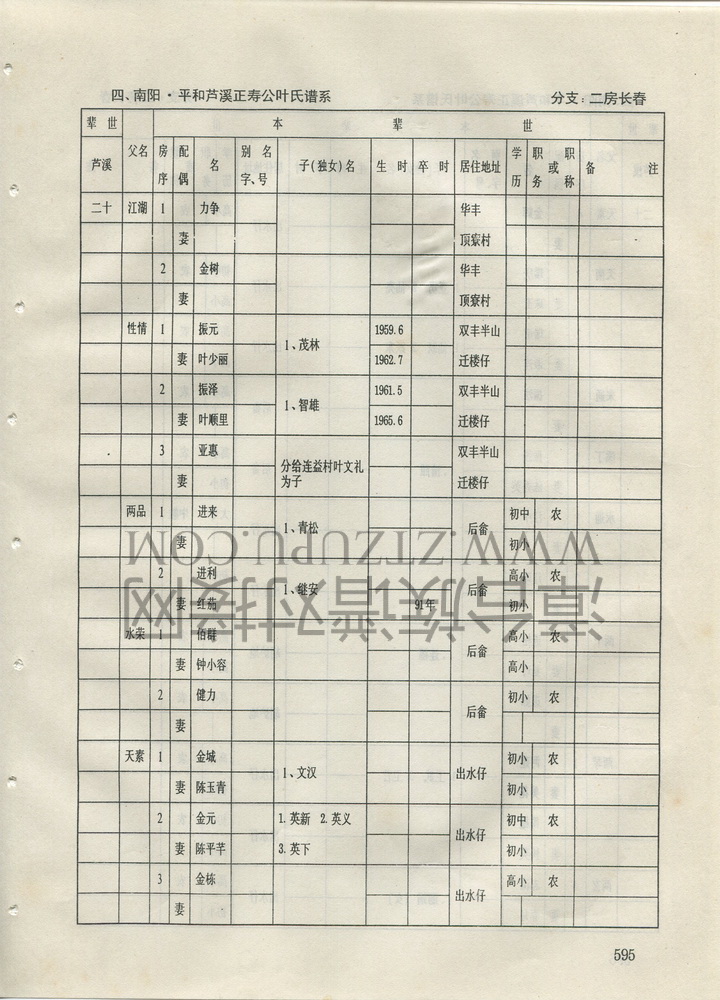 四、南阳·平和芦溪正寿公叶氏谱系 分支：二房长春
辈世 本辈世
芦溪 父名 房序 配偶 名 别名字、号 子(独女)名 生时 卒时 居住地址 学历 职务或职称 备注
二十 江湖 1 力争 华丰
妻 顶寮村
2 金树 华丰
妻 顶寮村
性情 1 振元 1、茂林 1959.6 双丰半山
妻 叶少丽 1962.7 迁楼仔
2 振泽 1、智雄 1961.5 双丰半山
妻 叶顺里 1965.6 迁楼仔
3 亚惠 分给连益村叶文礼为子 双丰半山
妻 迁楼仔
两品 1 进来 1、青松 后畲 初中 农
妻 初小
2 进利 1、继安 后畲 高小 农
妻 红茄 91年 初小
水荣 1 伯群 后畲 高小 农
妻 钟小容 高小
2 健力 后畲 初小 农
妻
天素 1 金城 1、文汉 出水仔 初小 农
妻 陈玉青 初小
2 金元 1.英新 2.英义 出水仔 初中 农
妻 陈平芊 3.英下 初小
3 金栋 出水仔 高小 农
妻
595
WWW.ZTZUPU.COM
漳台族谱对接网